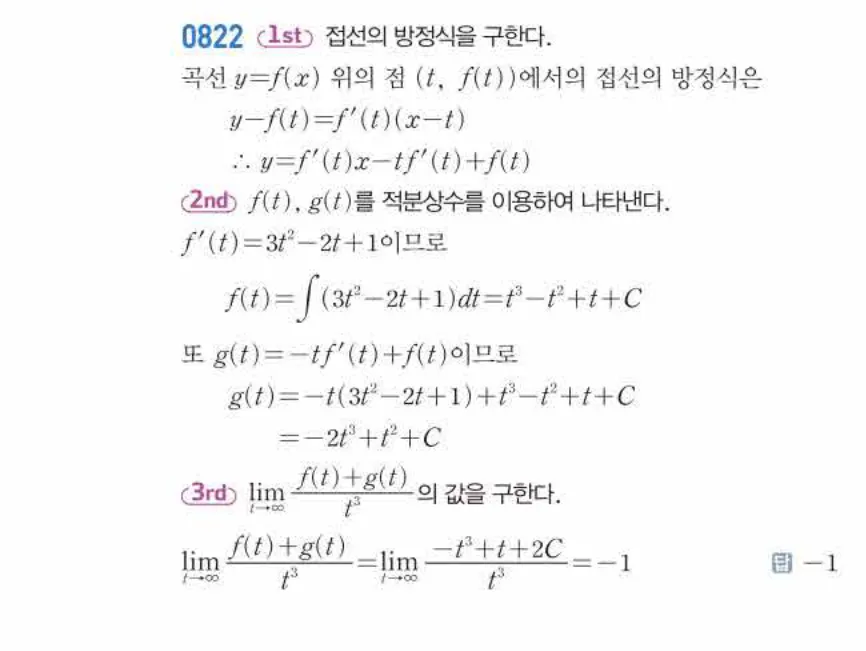 0822 1st 접선의 방정식을 구한다.
곡선 y=f(x) 위의 점 (t, f(t))에서의 접선의 방정식은
y-f(t)=f′(t)(x-t)
∴ y=f′(t)x-tf′(t)+f(t)
2nd f(t), g(t)를 적분상수를 이용하여 나타낸다.
f′(t)=3t²-2t+1이므로
f(t)=∫(3t²-2t+1)dt=t³-t²+t+C
또 g(t)=-tf′(t)+f(t)이므로
g(t)=-t(3t²-2t+1)+t³-t²+t+C
=-2t³+t²+C
3rd lim t→∞ (f(t)+g(t))/t³ 의 값을 구한다.
lim t→∞ (f(t)+g(t))/t³ = lim t→∞ (-t³+t+2C)/t³ = -1 답 -1